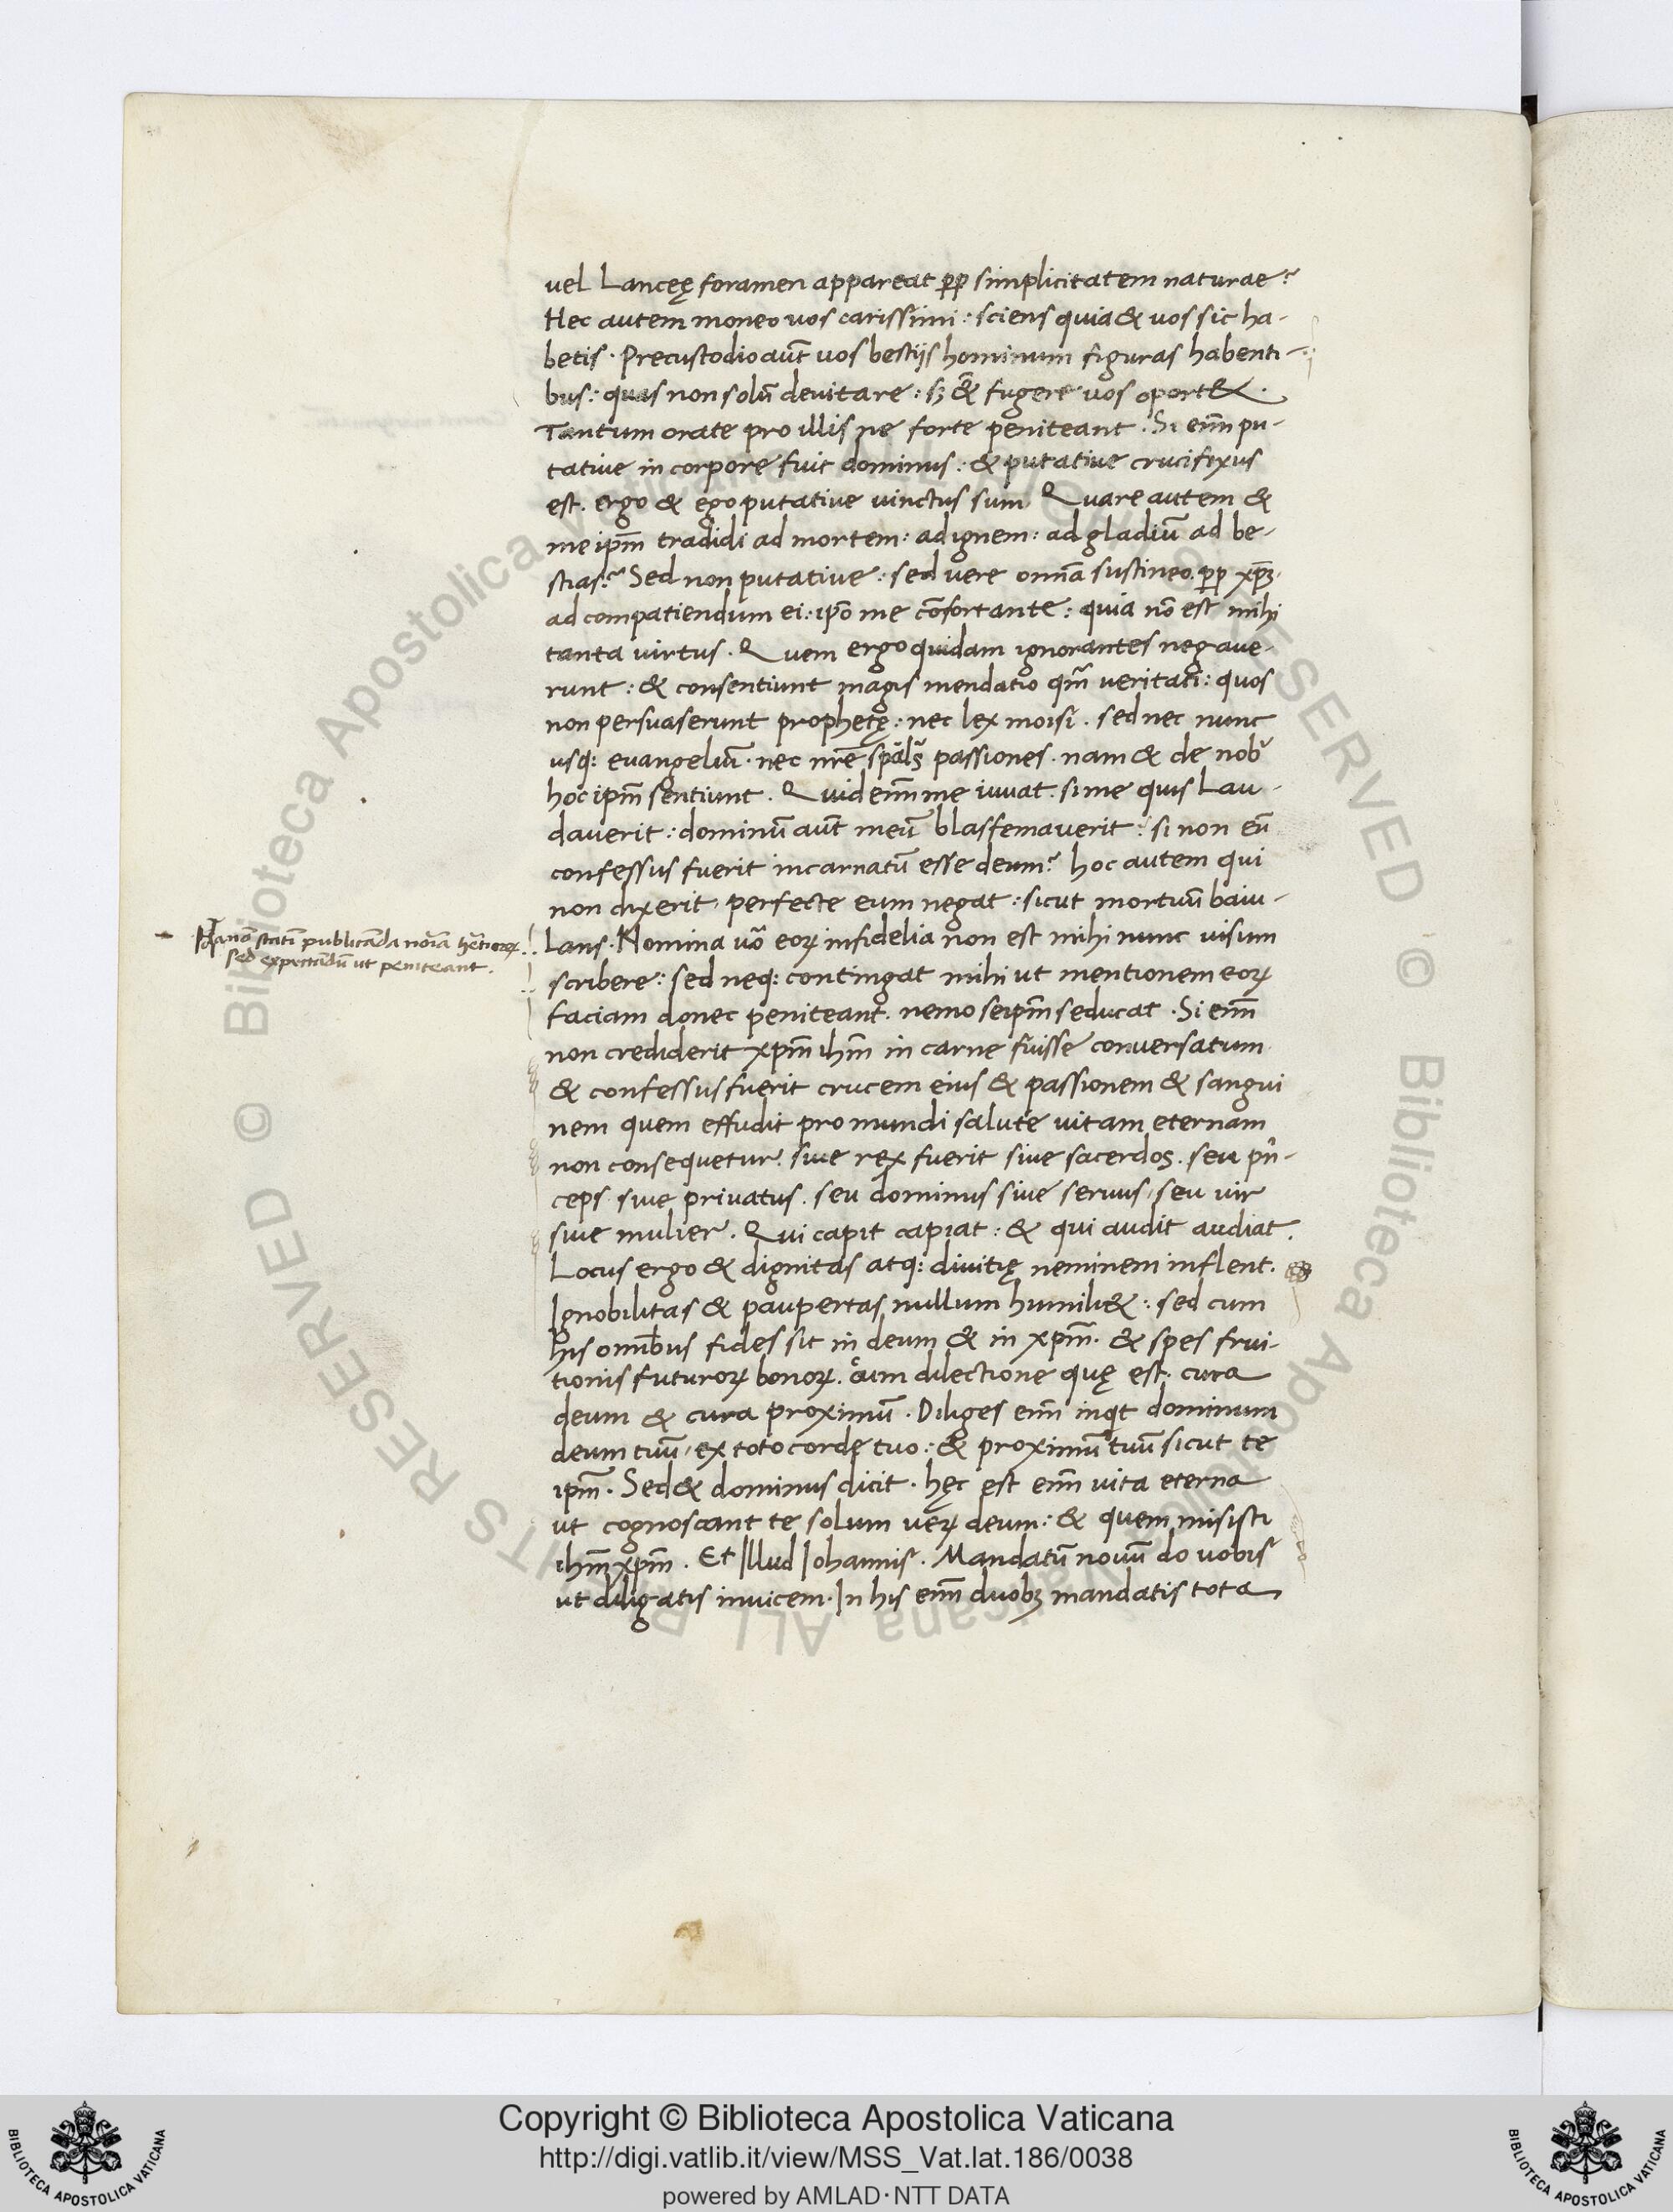 uel Lanceę foramen appareat ꝓp̄ simplicitatem naturae?
Hec autem moneo uos carissimi: sciens quia & uos sic ha-
betis. Precustodio aūt uos bestijs hominum figuras habenti-
bus: quas non solū deuitare: sꝫ & fugere uos oport&.
Tantum orate pro illis ne forte peniteant. Si eni̅m pu-
tatiue in corpore fuit dominus: & putatiue crucifixus
est. ergo & ego putatiue uinctus sum. Quare autem &
me ip̅m tradidi ad mortem: ad ignem: ad gladiū ad be-
stias? Sed non putatiue: sed uere omn̄a sustineo ꝓp̄ xp̅ꝫ.
ad compatiendum ei: ip̄o me cōfortante: quia nō est mihi
tanta uirtus. Quem ergo quidam ignorantes negaue-
runt: & consentiunt magis mendatio qm̄ ueritati: quos
non persuaserunt prophetę: nec lex moisi. sed nec nunc
usqꝫ euangeliū. nec nr̄e passiones. nam & de nob̄
hoc ip̅m sentiunt. Quid eni̅m me iuuat. si me quis Lau-
dauerit: dominū aūt meū blasfemauerit: si non eū
confessus fuerit incarnatū esse deum? hoc autem qui
non dixerit, perfecte eum negat: sicut mortuū baiu-
Hanō statī publicāda noīa hēticoꝝ
sed expectādū ut peniteant.
Lans. Nomina uō eoꝝ infidelia non est mihi nunc uisum
scribere: sed neqꝫ contingat mihi ut mentionem eoꝝ
faciam donec peniteant. nemo seip̅m seducat. Si eni̅m
non crediderit xp̅m ihm̅ in carne fuisse conuersatum
& confessus fuerit crucem eius & passionem & sangui
nem quem effudit pro mundi salute uitam eternam
non consequetur. siue rex fuerit siue sacerdos. seu pn̄-
ceps siue priuatus. seu dominus siue seruus, seu uir
siue mulier. Qui capit capiat: & qui audit audiat.
Locus ergo & dignitas atqꝫ diuitię neminem inflent.
Ignobilitas & paupertas nullum humili&: sed cum
his omībus fides sit in deum & in xp̅m. & spes frui-
tionis futuroꝝ bonoꝝ. cum dilectione quę est. cura
deum & cura proximū. Diliges eni̅m inqt dominum
deum tuū, ex toto corde tuo: & proximū tuū sicut te
ip̅m. Sed & dominus dicit. hęc est eni̅m uita eterna
ut cognoscant te solum ueꝝ deum: & quem misisti
ihm̅ xp̅m. Et Illud Iohannis. Mandatū nouū do uobis
ut diligatis inuicem. In his eni̅m duobꝫ mandatis tota
Copyright © Biblioteca Apostolica Vaticana
http://digi.vatlib.it/view/MSS_Vat.lat.186/0038
powered by AMLAD·NTT DATA
BIBLIOTECA APOSTOLICA VATICANA
BIBLIOTECA APOSTOLICA VATICANA